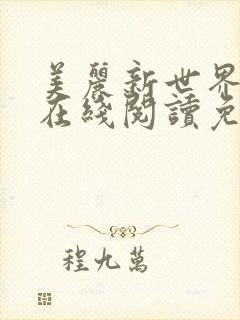 美麗新世界
在綫閱讀免
程九萬